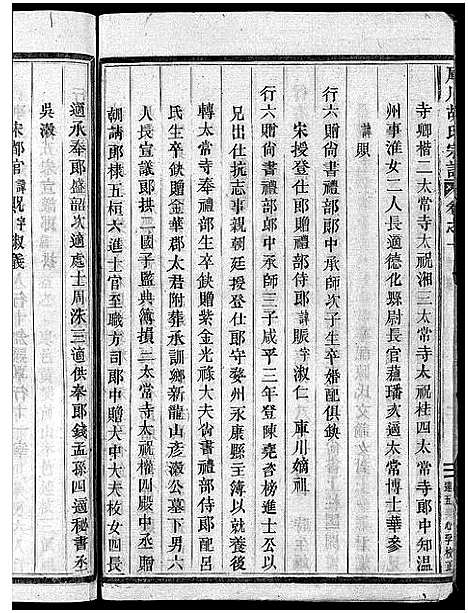 庫川胡氏宗譜 卷之一
寺卿楷二太常寺太祝湘三太常寺太祝桂四太常寺丞知溫
州事淮女二人長適德化縣尉長官蘊璠次適太常博士華參
諱頵
行六贈尚書禮部郎中承師次子生卒婚配俱缺
宋授登仕郎贈禮部侍郎諱賑字淑仁 庫川嫡祖
行六贈尚書禮部郎中承師三子咸平三年登陳堯咨榜進士公以
兄出仕抗志事親朝廷授登仕郎守婺州永康縣主簿以就養後
轉太常寺奉禮郎生卒缺贈紫金光祿大夫尚書禮部侍郎配呂
氏生卒缺贈金華郡太君附葬承訓鄉新龍山彥澂公墓下男六
人長宣議郎拱二國子監典簿損三太常寺太祝權四殿中丞
朝請郎樣五桓六進士官至職方司郎中贈大中大夫校女四長
行適承奉郎盛韶次適處士周洙三適供奉郎錢孟孫四適秘書丞
吳瀔
宋都官諱況字淑義